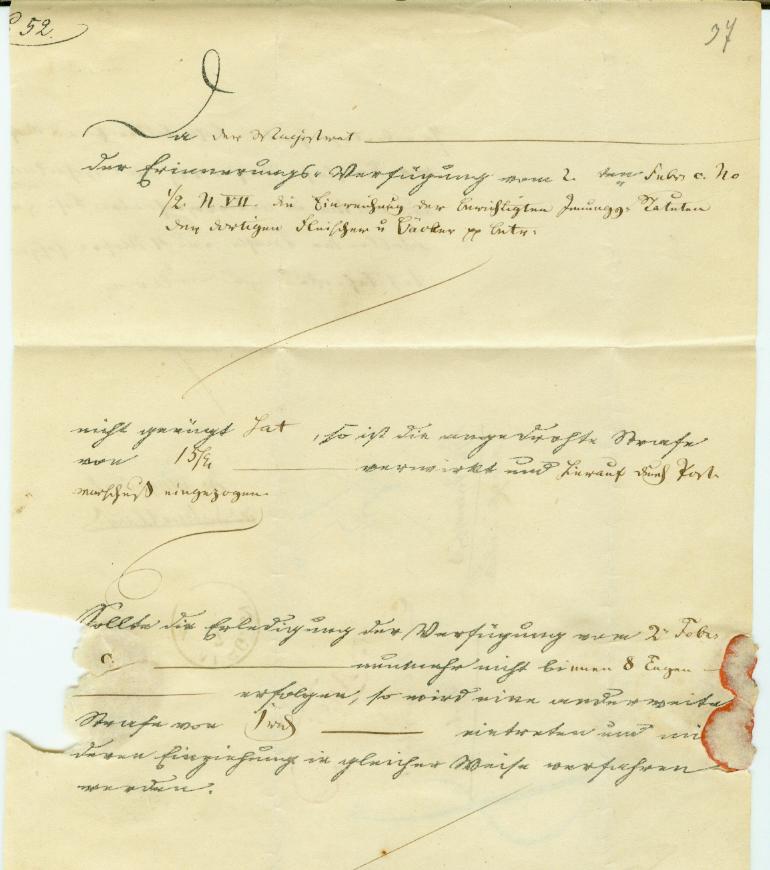 52.
37
Da der Magistrat
der Erinnerungs-Verfügung vom 2. ten Febr. c. No
1/2. N. VII. die Einreichung der berichtigten Innungs-Statuten
der dortigen Fleischer u Bäcker pp betr.
nicht genügt hat, so ist die angedrohte Strafe
von 15 verwirkt und hierauf durch Post-
vorschuß eingezogen.
Sollte die Erledigung der Verfügung vom 2 Febr.
c. nunmehr nicht binnen 8 Tagen
erfolgen, so wird eine anderweite
Strafe von 1 eintreten und mit
deren Einziehung in gleicher Weise verfahren
werden.